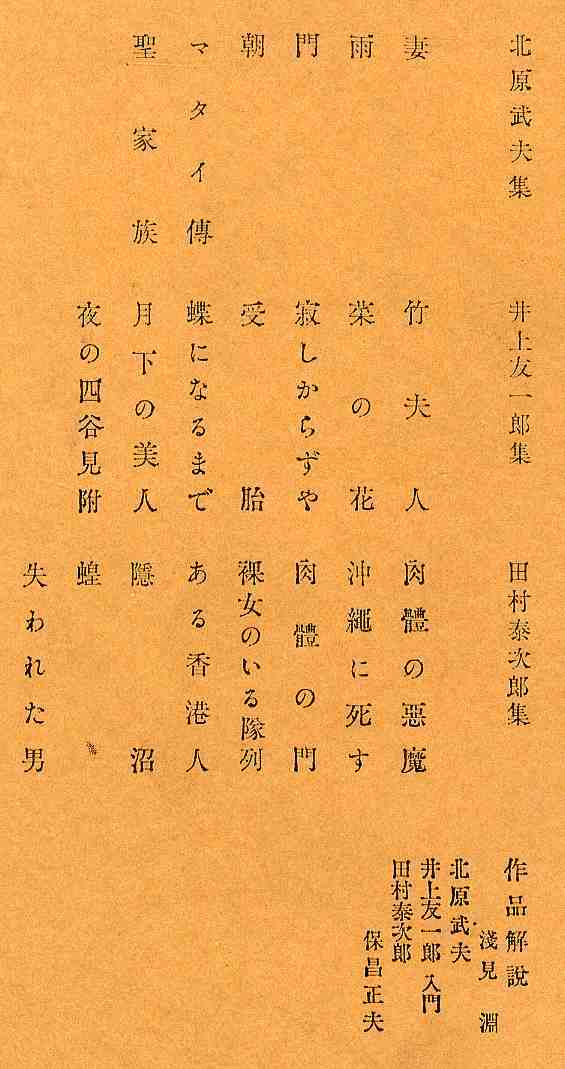 北原武夫集
妻
雨
門
朝
マタイ傳
聖家族
井上友一郎集
竹夫人
菜の花
寂しからずや
受胎
蝶になるまで
月下の美人
夜の四谷見附
田村泰次郎集
肉體の惡魔
沖繩に死す
肉體の門
裸女のいる隊列
ある香港人
隱沼
蝗
失われた男
作品解説
淺見淵
北原武夫
井上友一郎 入門
田村泰次郎
保昌正夫